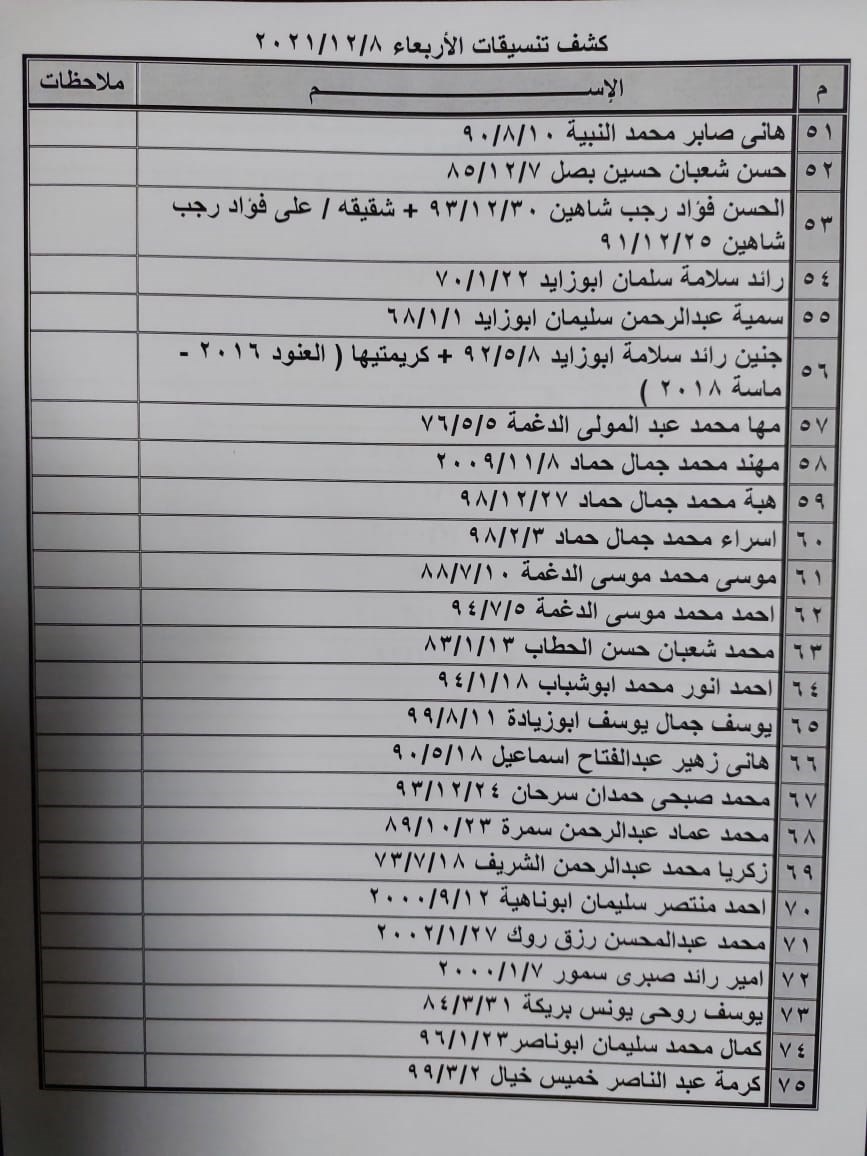 كشف تنسيقات الأربعاء ٢٠٢١/١٢/٨
م الإســـــــــــــــــــــــــم ملاحظات
٥١ هانى صابر محمد النبية ٩٠/٨/١٠
٥٢ حسن شعبان حسين بصل ٨٥/١٢/٧
٥٣ الحسن فؤاد رجب شاهين ٩٣/١٢/٣٠ + شقيقه / على فؤاد رجب
شاهين ٩١/١٢/٢٥
٥٤ رائد سلامة سلمان ابوزايد ٧٠/١/٢٢
٥٥ سمية عبدالرحمن سليمان ابوزايد ٦٨/١/١
٥٦ جنين رائد سلامة ابوزايد ٩٢/٥/٨ + كريمتيها ( العنود ٢٠١٦ -
ماسة ٢٠١٨ )
٥٧ مها محمد عبد المولى الدغمة ٧٦/٥/٥
٥٨ مهند محمد جمال حماد ٢٠٠٩/١١/٨
٥٩ هبة محمد جمال حماد ٩٨/١٢/٢٧
٦٠ اسراء محمد جمال حماد ٩٨/٢/٣
٦١ موسى محمد موسى الدغمة ٨٨/٧/١٠
٦٢ احمد محمد موسى الدغمة ٩٤/٧/٥
٦٣ محمد شعبان حسن الحطاب ٨٣/١/١٣
٦٤ احمد انور محمد ابوشباب ٩٤/١/١٨
٦٥ يوسف جمال يوسف ابوزيادة ٩٩/٨/١١
٦٦ هانى زهير عبدالفتاح اسماعيل ٩٠/٥/١٨
٦٧ محمد صبحى حمدان سرحان ٩٣/١٢/٢٤
٦٨ محمد عماد عبدالرحمن سمرة ٨٩/١٠/٢٣
٦٩ زكريا محمد عبدالرحمن الشريف ٧٣/٧/١٨
٧٠ احمد منتصر سليمان ابوناهية ٢٠٠٠/٩/١٢
٧١ محمد عبدالمحسن رزق روك ٢٠٠٢/١/٢٧
٧٢ امير رائد صبرى سمور ٢٠٠٠/١/٧
٧٣ يوسف روحى يونس بريكة ٨٤/٣/٣١
٧٤ كمال محمد سليمان ابوناصر ٩٦/١/٢٣
٧٥ كرمة عبد الناصر خميس خيال ٩٩/٣/٢